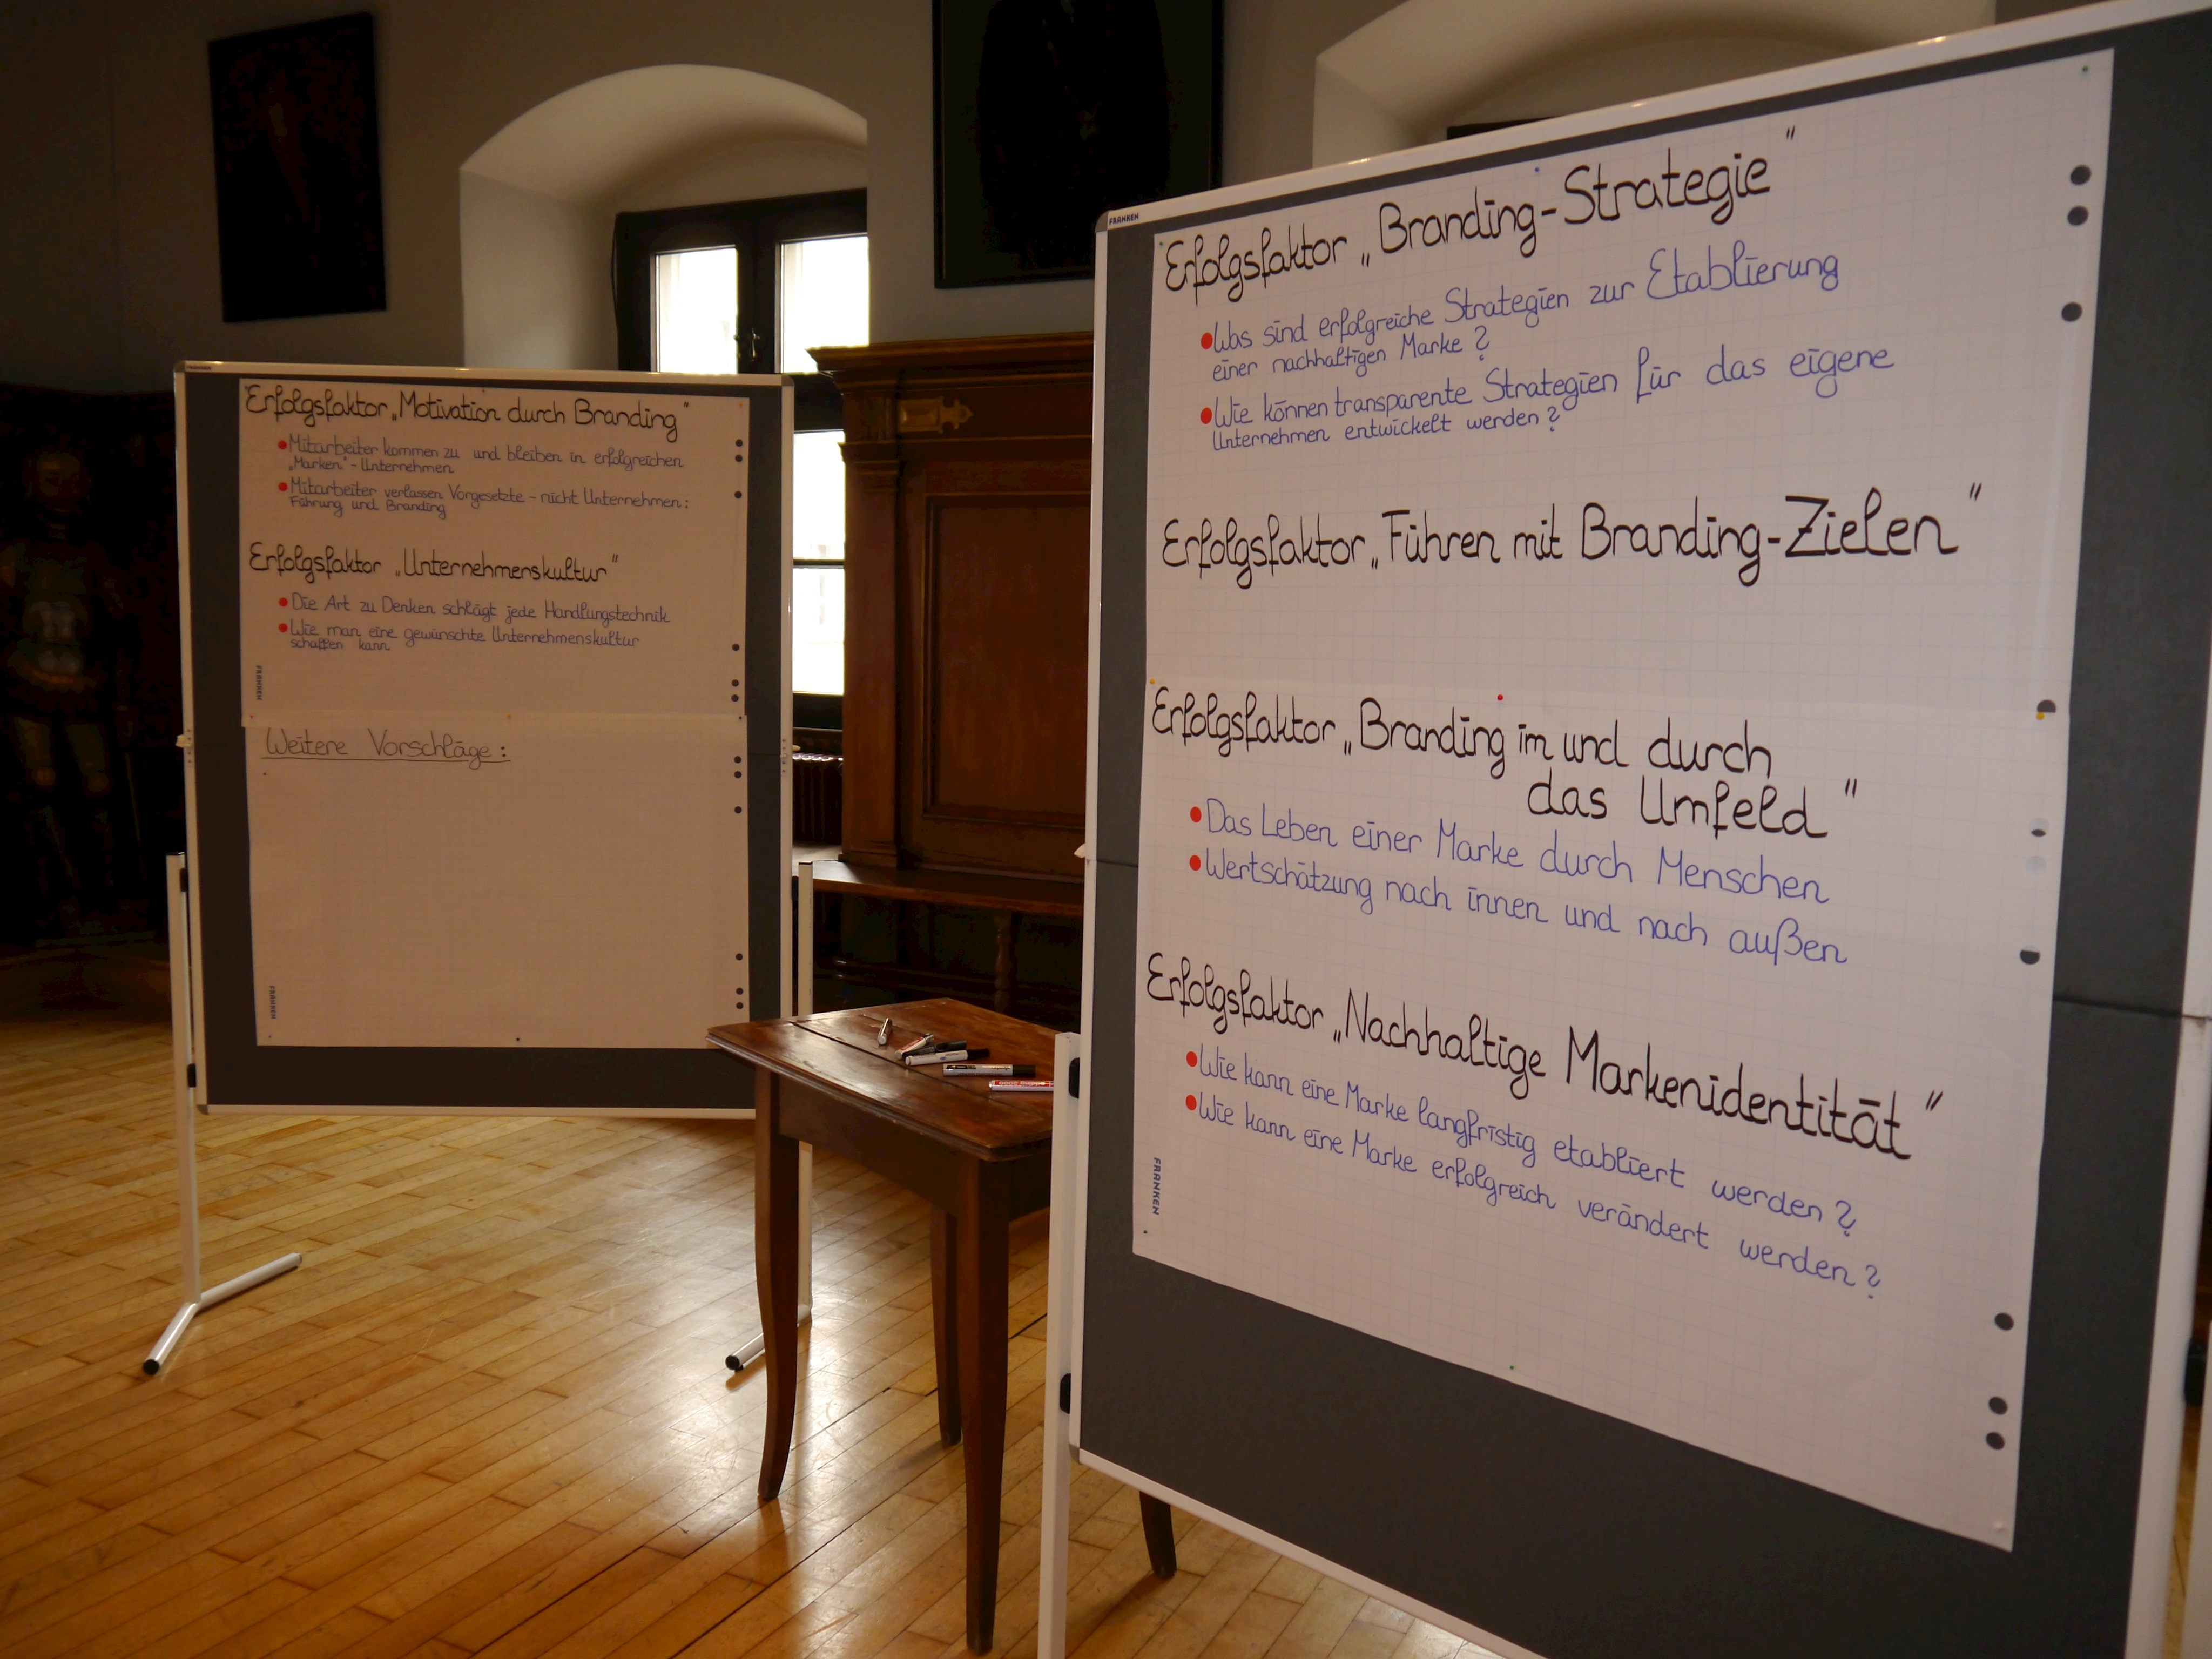 FRANKEN
Erfolgsfaktor „Motivation durch Branding"
• Mitarbeiter kommen zu und bleiben in erfolgreichen
„Marken"-Unternehmen
• Mitarbeiter verlassen Vorgesetzte - nicht Unternehmen:
Führung und Branding
Erfolgsfaktor „Unternehmenskultur"
• Die Art zu Denken schlägt jede Handlungstechnik
• Wie man eine gewünschte Unternehmenskultur
schaffen kann
FRANKEN
Weitere Vorschläge:
FRANKEN
FRANKEN
Erfolgsfaktor „Branding-Strategie"
• Was sind erfolgreiche Strategien zur Etablierung
einer nachhaltigen Marke?
• Wie können transparente Strategien für das eigene
Unternehmen entwickelt werden?
Erfolgsfaktor „Führen mit Branding-Zielen"
Erfolgsfaktor „Branding im und durch
das Umfeld"
• Das Leben einer Marke durch Menschen
• Wertschätzung nach innen und nach außen
Erfolgsfaktor „Nachhaltige Markenidentität"
• Wie kann eine Marke langfristig etabliert werden?
• Wie kann eine Marke erfolgreich verändert werden?
FRANKEN